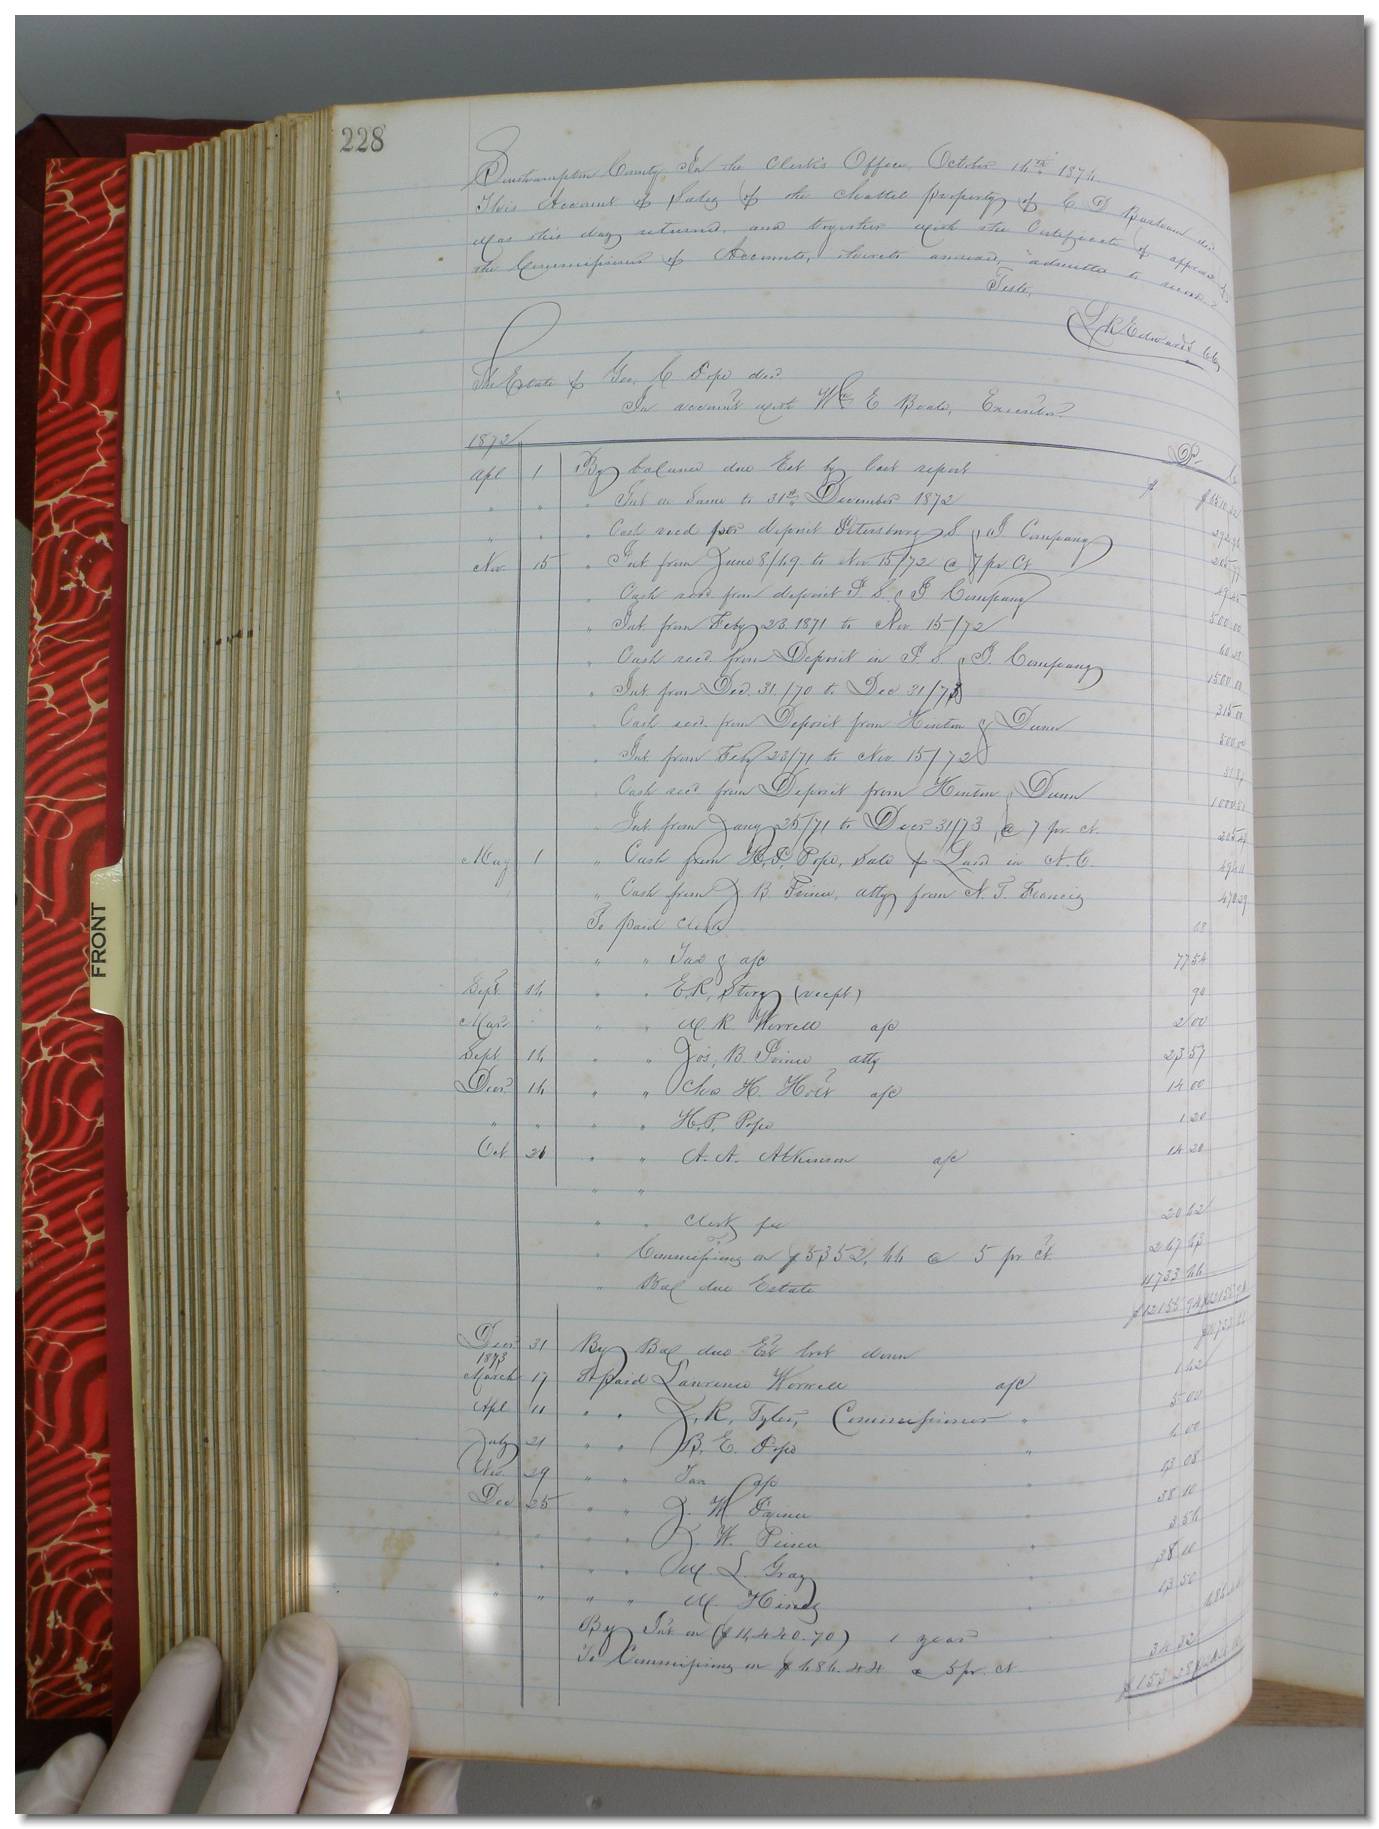 228
Southampton County In the Clerk's Office October 14th 1874
This Account of Sales of the chattel property of C D Barham decd
was this day returned, and together with the Certificate of approval of
the Commissioner of Accounts, thereto annexed, admitted to record
Teste,
L R Edwards CC
The Estate of Geo. C Pope decd
In account with Wm E Beale, Executor
1872 Dr
Apl 1 By balance due Est by last report
" " " Int on Same to 31st December 1872
" " " Cash recd from deposit Petersburg S & I Company
Nov 15 " Int from June 8/69 to Nov 15/72 @ 7 pr Ct
" Cash recd from deposit P. S. & I Company 500.00
" Int. from Feby 23. 1871 to Nov. 15/72
" Cash recd from Deposit in P. S. & I. Company 1500.00
" Int from Dec. 31/70 to Dec 31/73 315.00
" Cash recd. from Deposit from Hinton & Dunn
" Int from Feby 23/71 to Nov. 15/72
" Cash recd from Deposit from Hinton & Dunn
" Int. from Jany 25/71 to Decr 31/73 @ 7 pr ct.
May 1 " Cash from H. P. Pope, Sale of Land in N. C.
" Cash from J. B. Prince, atty from N. T. Francis
To paid
" " Tax & a/c 77 54
Sept 14 " " E. R. Story (recpt) 90
Mar " " M. R. Worrell a/c 2 00
Sept 14 " " Jos. B. Prince atty 23 57
Decr 14 " " Chas H. Holt a/c 14 00
" " " " H. P. Pope 1 20
Oct 21 " " A. A. Atkinson a/c 14 20
" "
" " Clerks fee 20 42
" Commissions on $5352.44 @ 5 pr ct. 267 63
" Bal due Estate 11733 44
$12155 94
Decr 31 By Bal due Est brot down
1873
March 17 To paid Lawrence Worrell a/c 1 42
Apl 11 " " J. R. Tyler, Commissioner " 5 00
July 21 " " B. E. Pope " 6 00
Nov. 29 " " Tax a/c " 13 08
Dec 25 " " J. W. Prince " 38 10
" " " J. W. Prince " 3 54
" " " M. L. Gray " 38 11
" " " " M. Hines " 13 50
By Int on ($11,440.70) 1 year
To Commissions on $484.44 @ 5 pr. ct